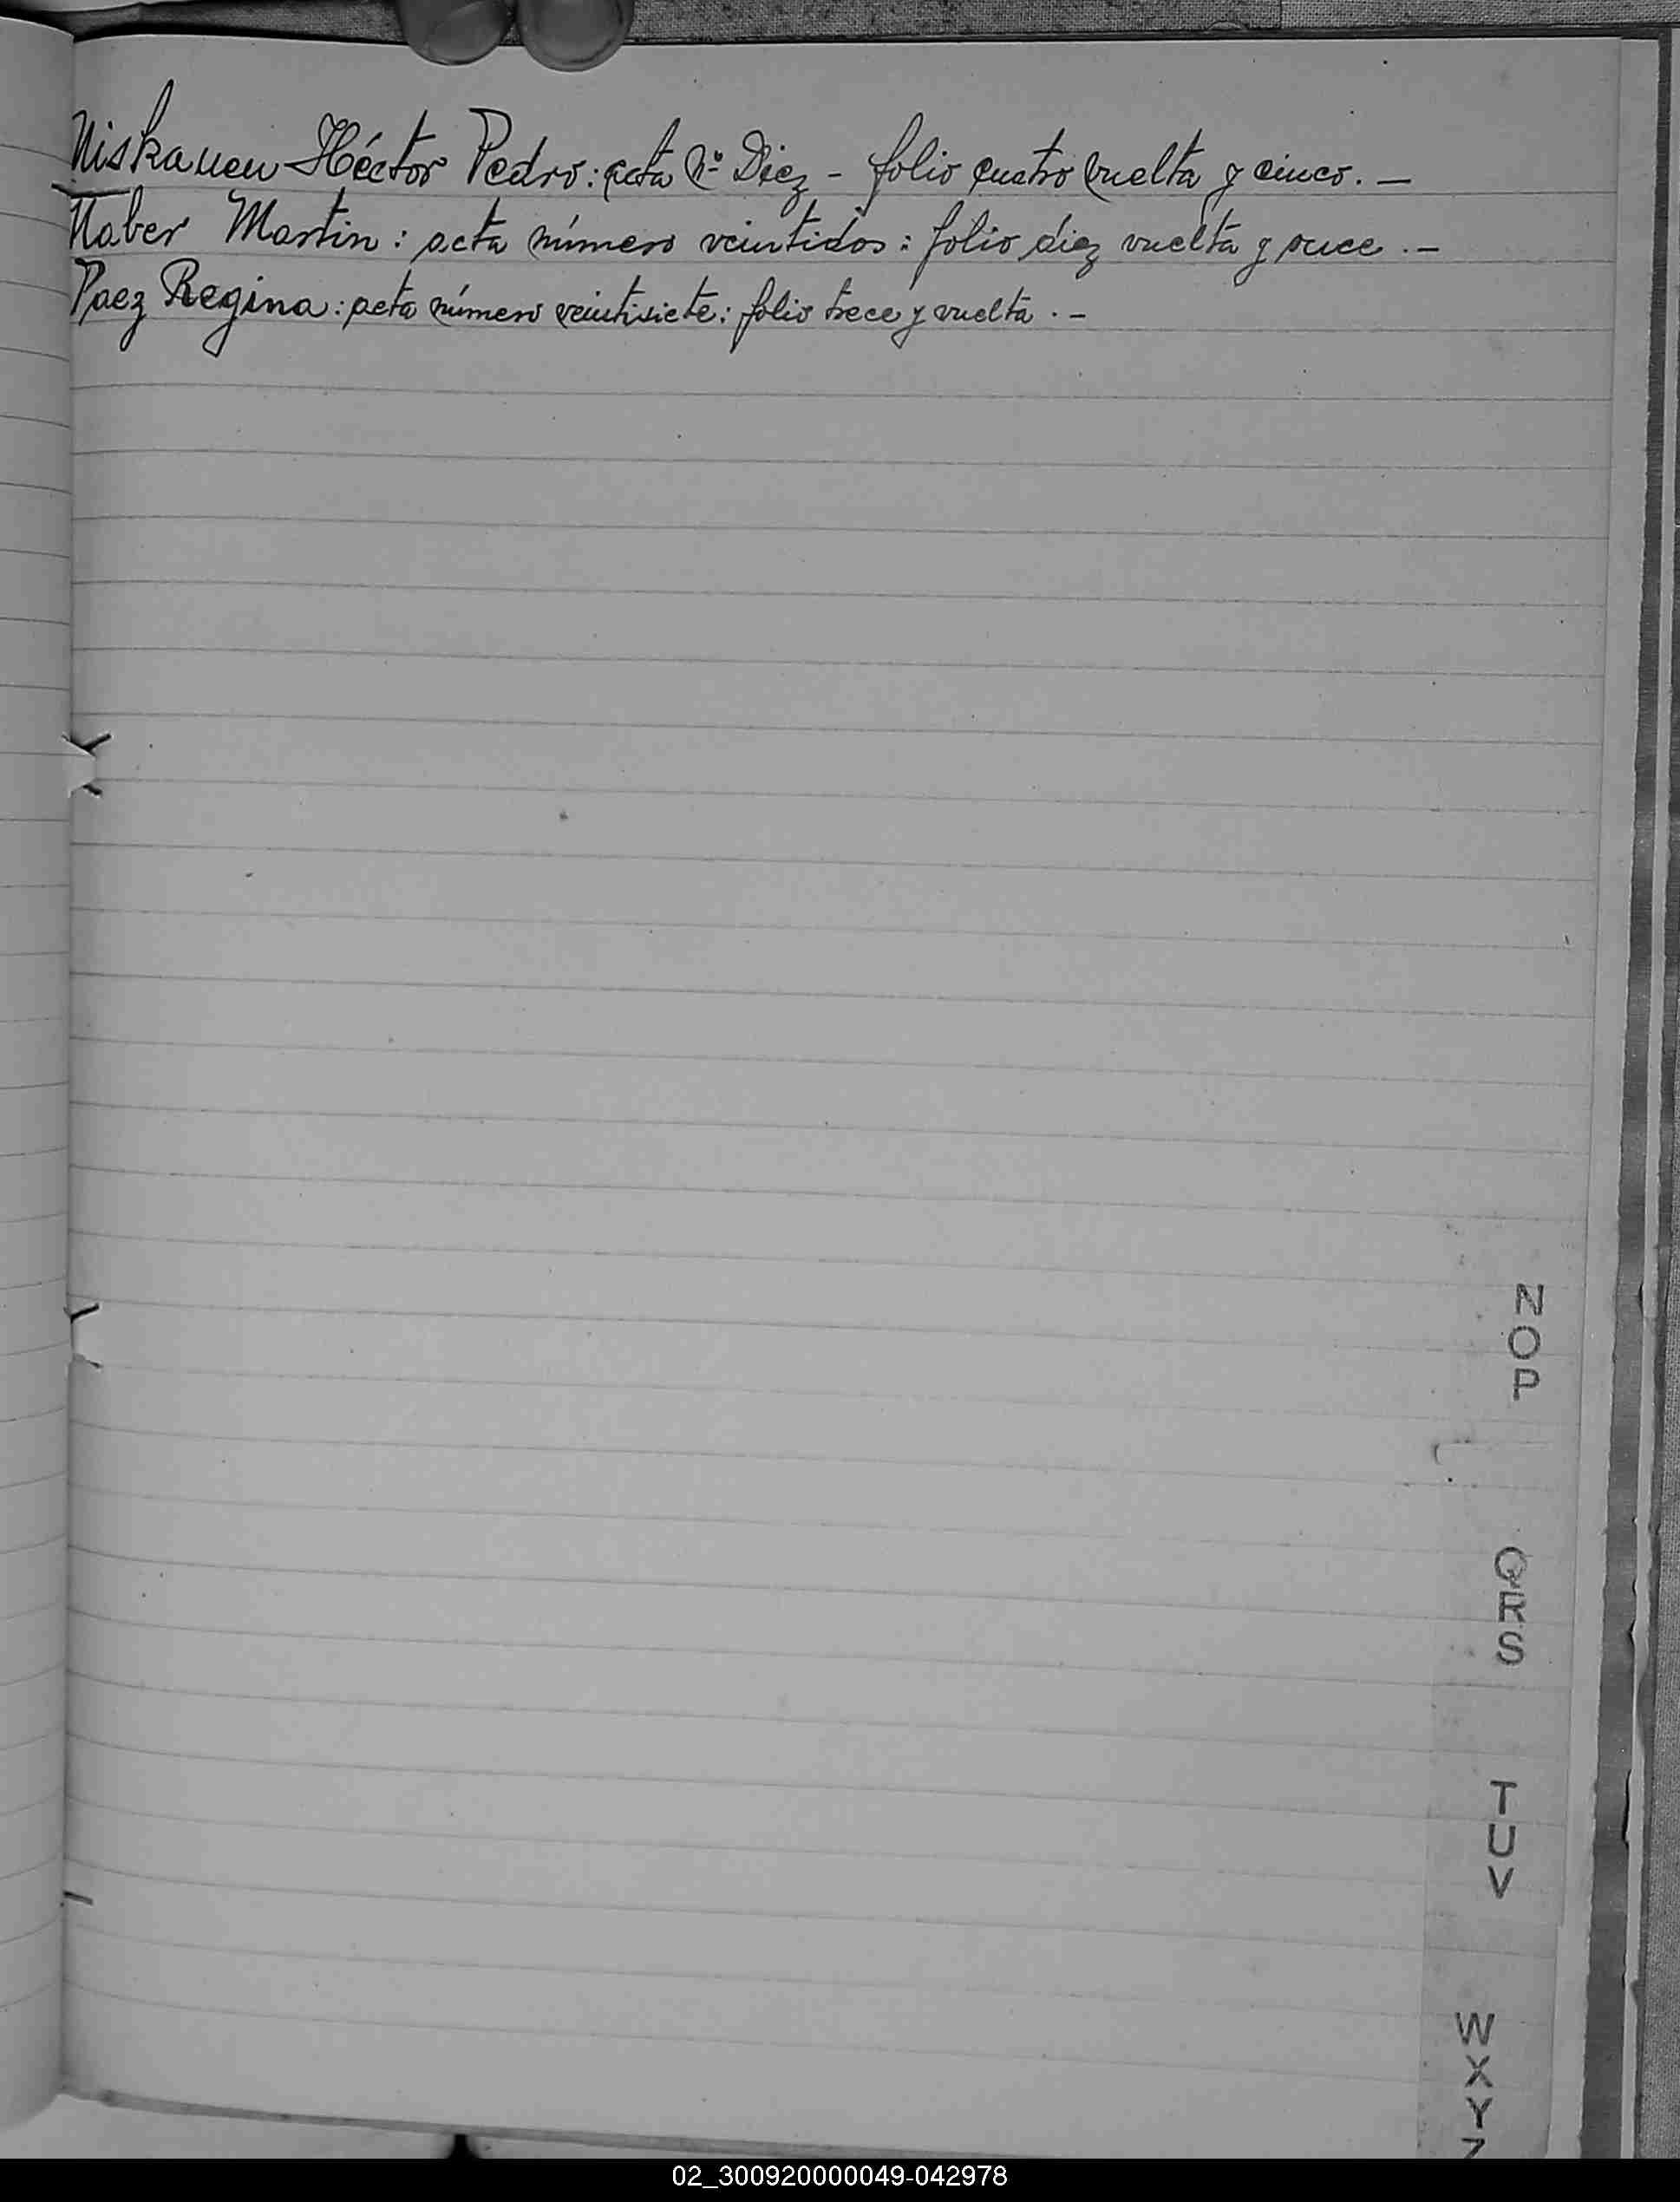 Niskanen Héctor Pedro: acta Nº Diez - folio cuatro vuelta y cinco. —
Naber Martin: acta número veintidos: folio diez vuelta y once. —
Paez Regina: acta número veintisiete: folio trece y vuelta. —
N
O
P
Q
R
S
T
U
V
W
X
Y
Z
02_300920000049-042978